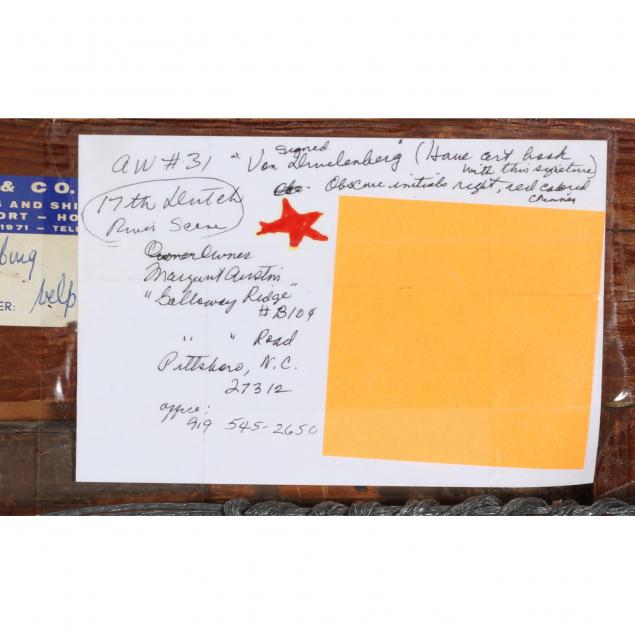 AW #31 "Von Druelenberg" (Have art book
signed
with this signature)
Obs. Obscure initials right, red colored
chimney
17th Dutch
River Scene
Owner Owner
Margaret Austin
"Galloway Ridge"
#B104
" " Road
Pittsboro, N.C.
27312
office:
919 545-2650
& CO.
S AND SHI
ORT - HO
1971 - TELE
burg
ER: help